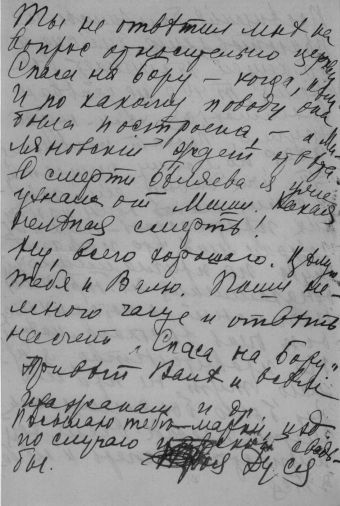 Ты не отвѣтил мнѣ на
вопрос относительно церкви
Спаса на бору – когда, кѣм
И по какому поводу она
была построена, – а Ми-
ляновскій ждет отвѣта.
О смерти Беляева я уже
узнала от Миши. Какая
нелѣпая смерть!
Ну, всего хорошаго. Цѣлую
тебя и Валю. Пиши не-
много чаще и отвѣть
насчет „Спаса на бору"
Привѣт Валѣ и всѣм
и др.
Посылаю тебѣ марки, изд.
по случаю свадь-
бы. Твоя Дуся